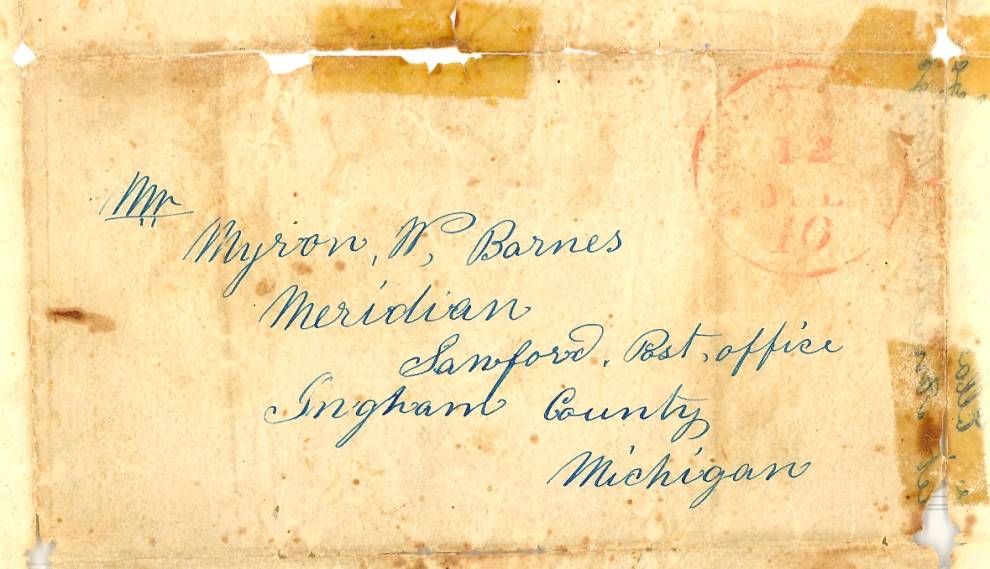 Mr
Myron, W, Barnes
Meridian
Sanford. Post, office
Ingham County
Michigan
12
JUL
10